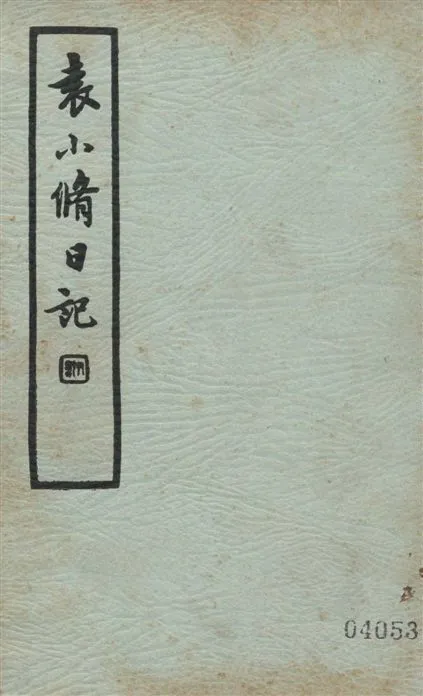 袁小脩日記
04053